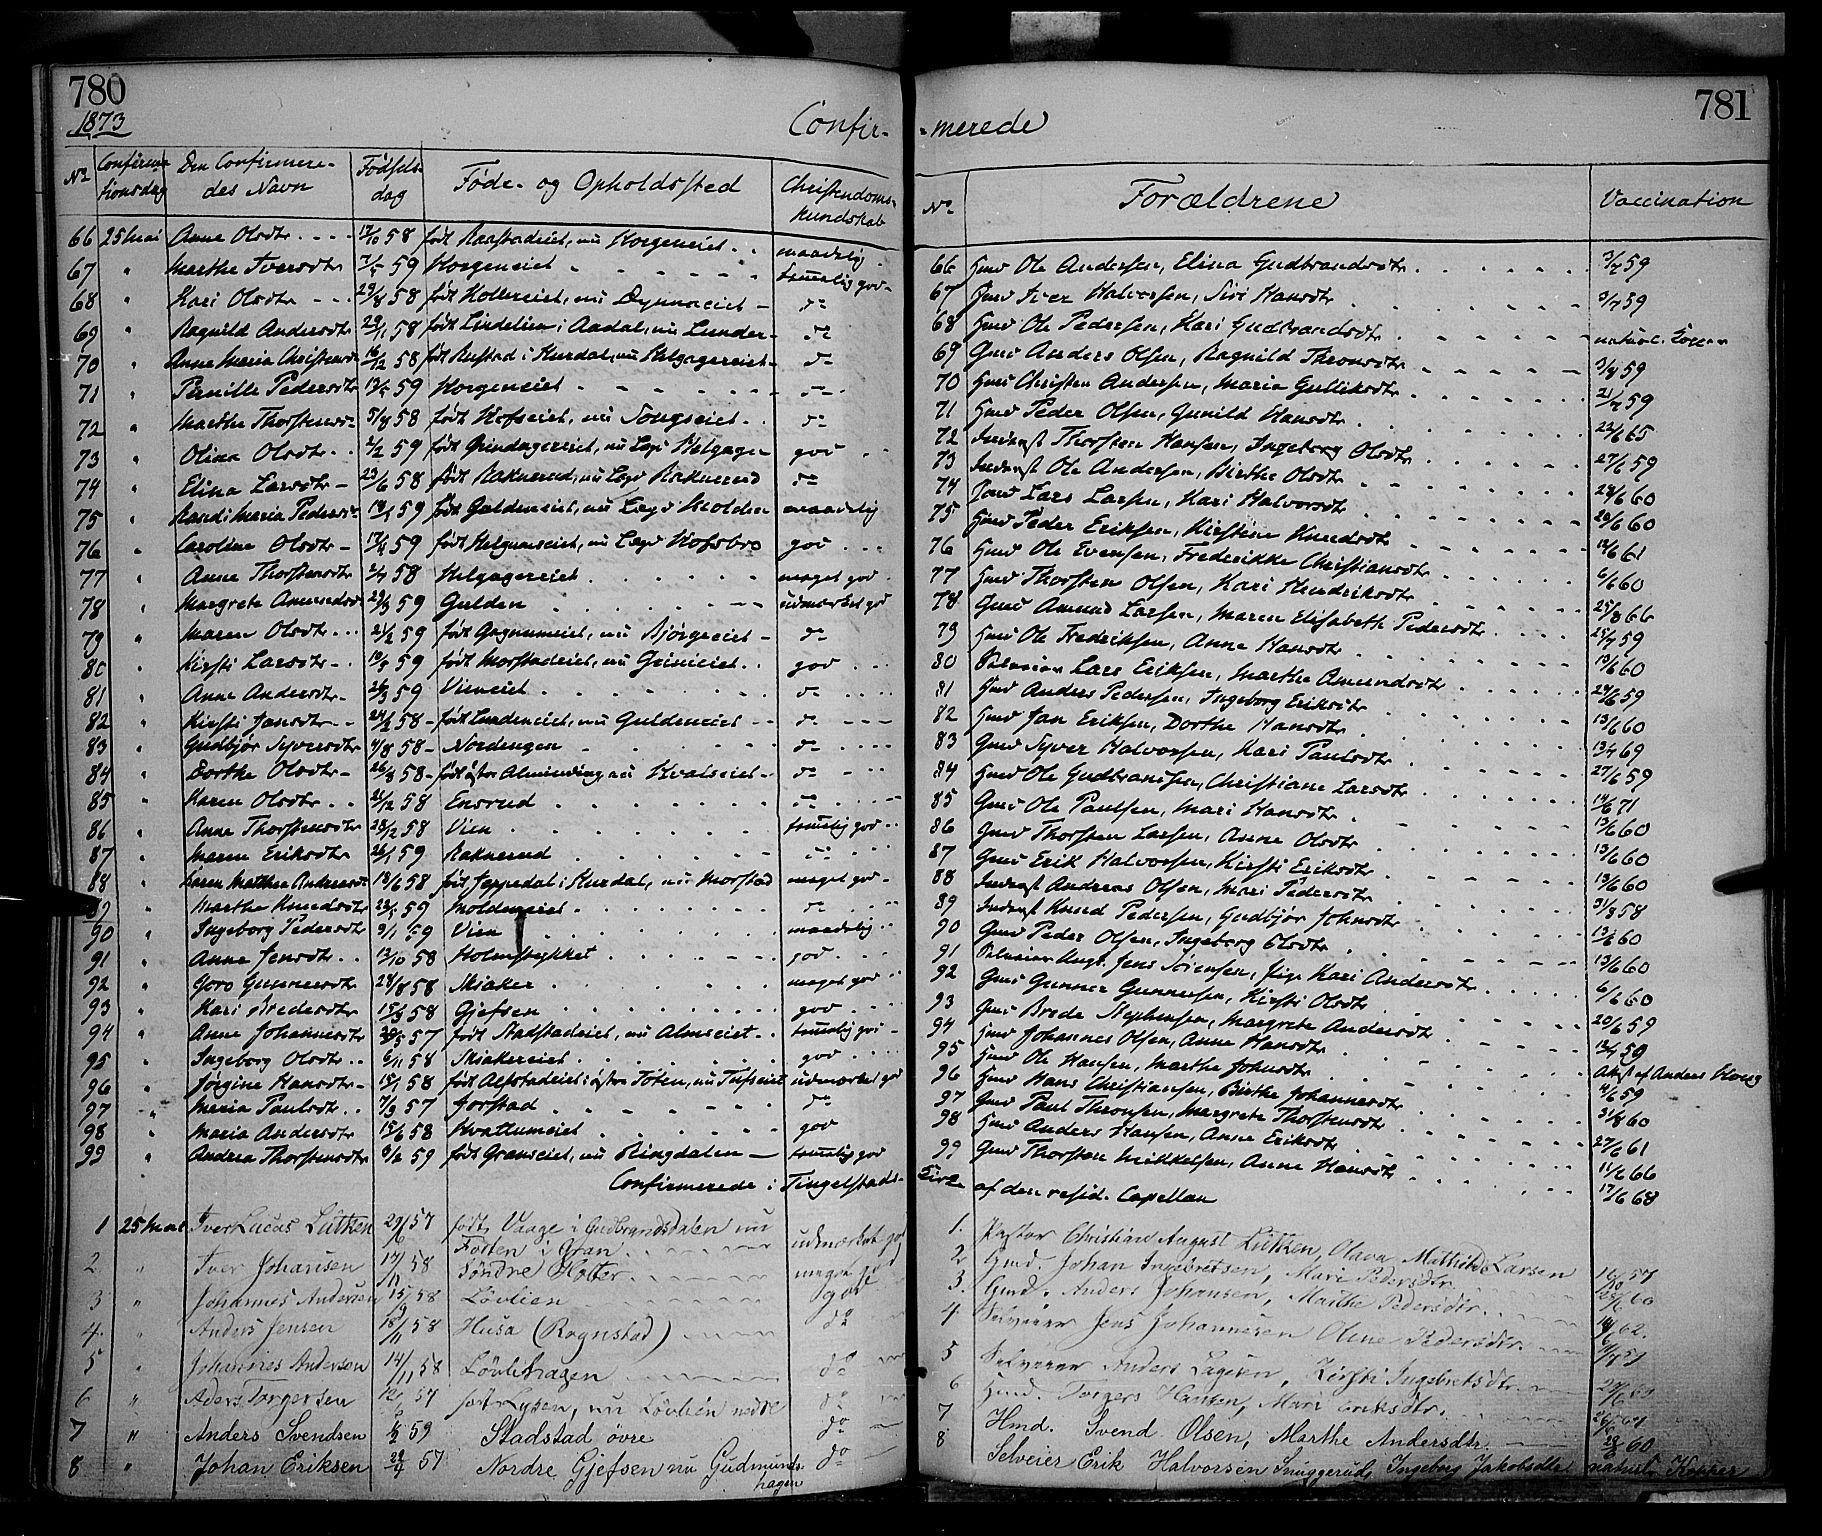 780
1873
Confir-
No Confirmationsdag Den Confirmeredes Navn Fødselsdag Føde- og Opholdssted Christendomskundskab
66 25 Mai Anne Olsdtr 58 født Raastadeiet, nu Horgeneiet maadelig
67 " Marthe Iversdtr 59 Horgeneiet temmelig god
68 " Kari Olsdtr 29/8 58 født Hollereiet, nu Dynnaeiet do
69 " Ragnild Andersdtr 58 født Lindelien i Aadal, nu Lunder do
70 " Anne Maria Christensdtr 16/12 58 født Rustad i Hurdal, nu Helgagereiet do
71 " Pernille Pedersdtr 59 Horgeneiet do
72 " Marthe Thorstensdtr 5/8 58 født Hofseiet, nu Songseiet do
73 " Olina Olsdtr 2/2 59 født Grindagereiet, nu Logi Helgager god
74 " Elina Larsdtr 23/6 58 født Raknerud, nu Logd Raknerud do
75 " Randi Maria Pedersdtr 59 født Guldeneiet, nu Logd Molden maadelig
76 " Caroline Olsdtr 59 født Helgumseiet, nu Logd Hofsbro god
77 " Anne Thorstensdtr 58 Helgagereiet meget god
78 " Margrete Amundsdtr 59 Gulden udmærket god
79 " Maren Olsdtr 21/2 59 født Gagnumeiet, nu Bjørgeeiet do
80 " Kirsti Larsdtr 59 født Morstadeiet, nu Grinieiet god
81 " Anne Andersdtr 26/3 59 Vieneiet do
82 " Kirsti Jansdtr 58 født Lundeneiet, nu Guldeneiet do
83 " Gudbjør Syversdtr 58 Nordengen do
84 " Dorthe Olsdtr 26/8 58 født østre Alminding nu Hvalseiet do
85 " Karen Olsdtr 21/12 58 Ensrud do
86 " Anne Thorstensdtr 28/12 58 Vien temmelig god
87 " Maren Eriksdtr 26/1 59 Raknerud do
88 " Karen Mathea Andersdtr 18/6 58 født Jeppedal i Hurdal, nu Morstad meget god
89 " Marthe Knudsdtr 59 Moldeneiet do
90 " Ingeborg Pedersdtr 9/1 59 Vien maadelig
91 " Anne Jensdtr 13/10 58 Holmstykket god
92 " Goro Gunnersdtr 28/8 58 Skiaker meget god
93 " Kari Bredesdtr 58 Gjefsen god
94 " Anne Johannesdtr 57 født Stadstadeiet, nu Almseiet temmelig god
95 " Ingeborg Olsdtr 6/11 58 Skiakereiet god
96 " Jørgine Hansdtr 58 født Alfstadeiet i østre Toten, nu Tufseiet udmærket god
97 " Maria Paulsdtr 7/9 57 Jorstad do
98 " Maria Andersdtr 15/6 58 Hvattumeiet god
99 " Andrea Thorstensdtr 59 født Granseiet, nu Ringdalen temmelig god
Confirmerede i Tingelstads-
1 25 Mai Iver Lucas Lütken 57 født Vaage i Gudbrandsdalen nu
Føsten i Gran udmærket god
2 " Iver Johansen 58 Søndre Holter meget
3 " Johannes Andersen 15/9 58 Løvlien god
4 " Anders Jensen 18/11 58 Husa (Rognstad) do
5 " Johannes Andersen 14/11 58 Løvlihagen do
6 " Aders Torgersen 57 født Lysen, nu Løvlien nedre do
7 " Anders Svendsen 59 Stadstad øvre do
8 " Johan Eriksen 57 Nordre Gjefsen nu Gudmunds-
hagen do
781
-merede
No Forældrene Vaccination
66 Hmd Ole Andersen, Elina Gudbrandsdtr 59
67 Hmd Iver Halvorsen, Siri Hansdtr 59
68 Hmd Ole Pedersen, Kari Gudbrandsdtr naturl.
69 Gmd Anders Olsen, Ragnild Thronsdtr 59
70 Hmd Christen Andersen, Maria Gulliksdtr 59
71 Hmd Peder Olsen, Gunild Hansdtr 65
72 Inderst Thorsten Hansen, Ingeborg Olsdtr 27/6 59
73 Inderst Ole Andersen, Birthe Olsdtr 60
74 Hmd Lars Larsen, Kari Halvorsdtr 60
75 Hmd Peder Eriksen, Kirstine Knudsdtr 61
76 Hmd Ole Evensen, Frederikke Christiansdtr 6/6 60
77 Hmd Thorsten Olsen, Kari Hendriksdtr 25/8 66
78 Gmd Amund Larsen, Maren Elisabeth Pedersdtr 59
79 Hmd Ole Fredriksen, Anne Hansdtr 60
80 Selveier Lars Eriksen, Marthe Amundsdtr 59
81 Hmd Anders Pedersen, Ingeborg Eriksdtr 13/6 60
82 Hmd Jan Eriksen, Dorthe Hansdtr 69
83 Gmd Syver Halvorsen, Kari Paulsdtr 27/6 59
84 Hmd Ole Gudbrandsen, Christiane Larsdtr 71
85 Gmd Ole Paulsen, Mari Hansdtr 13/6 60
86 Gmd Thorsten Larsen, Anne Olsdtr 13/6 60
87 Gmd Erik Halvorsen, Kirsti Eriksdtr 13/6 60
88 Inderst Andreas Olsen, Mari Pedersdtr 31/8 58
89 Inderst Knud Pedersen, Gudbjør Johnsdtr 13/6 60
90 Gmd Peder Olsen, Ingeborg Olsdtr 13/6 60
91 Selveier Ungk. Jens Sørensen, Pige Kari Andersdtr 6/6 60
92 Gmd Gunner Gunnersen, Kirsti Olsdtr 20/6 59
93 Gmd Brede Stephensen, Margrete Andersdtr 59
94 Hmd Johannes Olsen, Anne Hansdtr
95 Hmd Ole Hansen, Marthe Johnsdtr Attest af Anders
96 Hmd Hans Christiansen, Birthe Johannesdtr 4/6 59
97 Gmd Paul Thronsen, Margrete Thorstensdtr 31/8 60
98 Hmd Anders Hansen, Anne Eriksdtr 27/6 61
99 Gmd Thorsten Mikkelsen, Anne Hansdtr 11/6 66
Kirke af den resid. Capellan 17/6 68
1. Pastor Christian August Lütken, Olava Mathilde Larsen 57
2 Gmd. Johan Ingebretsen, Mari Pedersdtr. 60
3. Gmd. Anders Johansen, Marthe Pedersdtr. 62.
4 Selveier Jens Johannesen Oline Pedersdtr.
5 Selveier Anders Larsen, Kirsti Ingebretsdtr.
6 Hmd. Torgers Hansen, Mari Eriksdtr.
7 Hmd. Svend Olsen, Marthe Andersdtr. 60
8 Selveier Erik Halvorsen Snuggerud, Ingeborg Jakobsdtr naturl. Kopper